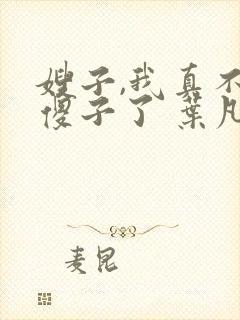 嫂子,我真不
傻子了 葉凡
麦昆